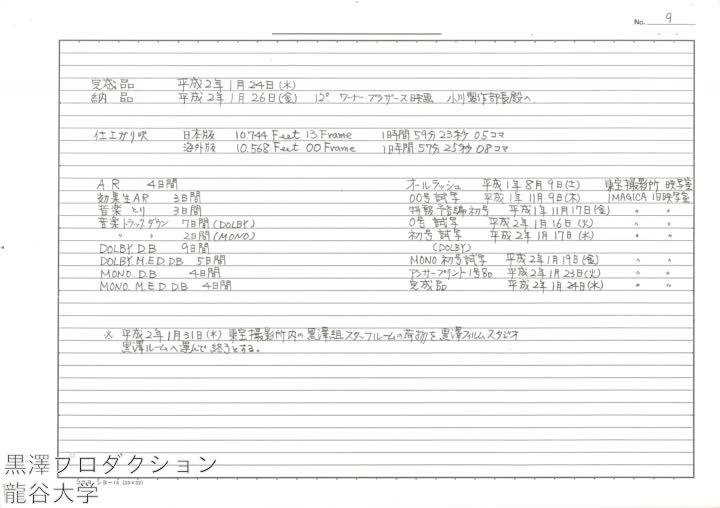 No. 9
完成品 平成2年1月24日(水)
納品 平成2年1月26日(金) 12° ワーナーブラザース映画 小川製作部長殿へ
仕上がり呎 日本版 10.744 Feet 13 Frame 1時間59分23秒05コマ
海外版 10.568 Feet 00 Frame 1時間57分25秒08コマ
A.R 4日間 オールラッシュ 平成1年8月9日(土) 東宝撮影所 映写室
効果生AR 3日間 00号試写 平成1年11月9日(木) IMAGICA 旧映写室
音楽とり 3日間 特報.予告編初号 平成1年11月17日(金) 〃 〃
音楽トラックダウン 7日間(DOLBY) 0号試写 平成2年1月16日(火) 〃 〃
〃 〃 2日間(MONO) 初号試写 平成2年1月17日(水) 〃 〃
DOLBY D.B 9日間 (DOLBY)
DOLBY.M.E.D.DB 5日間 MONO初号試写 平成2年1月19日(金) 〃 〃
MONO.D.B 4日間 アンサープリント1号B0 平成2年1月23日(火) 〃 〃
MONO.M.E.D.DB 4日間 完成品 平成2年1月24日(水) 〃 〃
※ 平成2年1月31日(水) 東宝撮影所内の黒澤組スタッフルームの荷物を黒澤フィルムスタジオ
黒澤ルームへ運んで終了とする。
黒澤プロダクション
龍谷大学